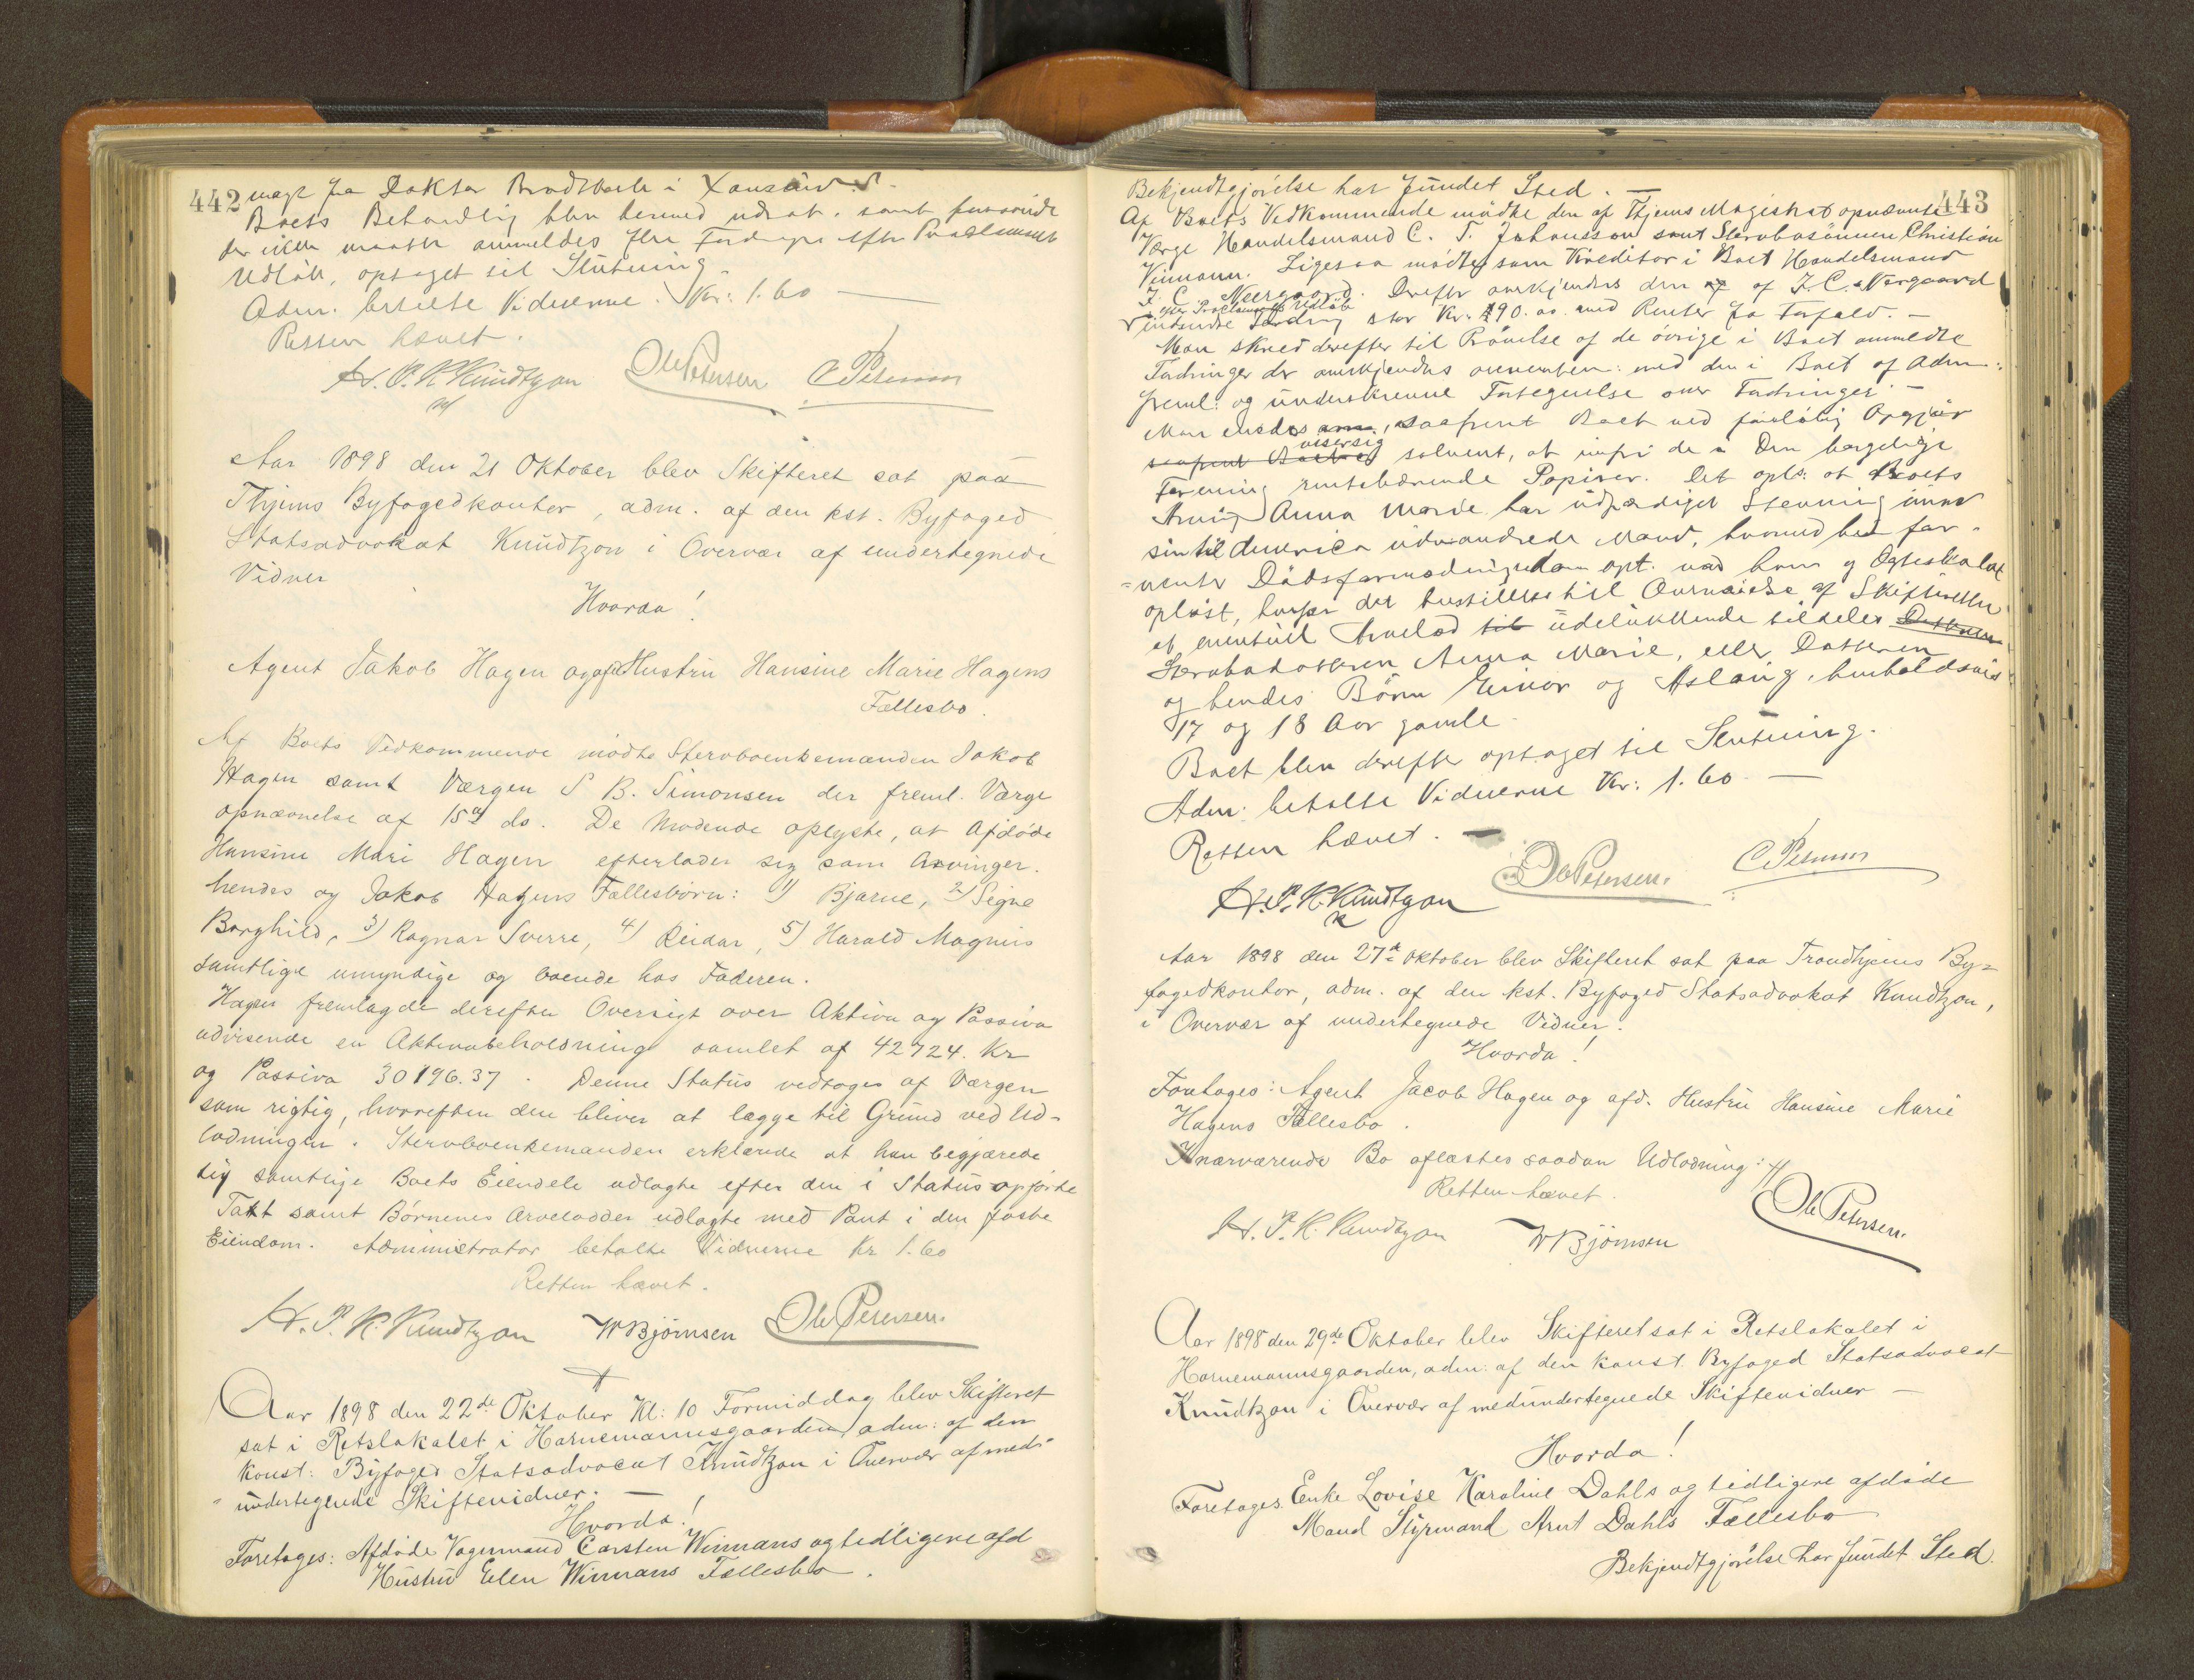 442 magt fra Doktor i
Boets Behandling blev dermed udsat. samt forsaavidt
der ikke maatte anmeldes flere Fordringer efter Proclamaets
Udløb, optaget til Slutning.
Adm. betalte Vidnerne Kr: 1.60 —
Retten hævet.
H. P. K. Knudtzon Ole Petersen C Petersen
Aar 1898 den 21 Oktober blev Skifteret sat paa
Thjems Byfogedkontor, adm. af den kst. Byfoged
Statsadvokat Knudtzon i Overvær af undertegnede
Vidner
Hvorda!
Agent Jakob Hagen og afd Hustru Hansine Marie Hagens
Fællesbo.
Af Boets Vedkommende mødte Stervboenkemanden Jakob
Hagen samt Værgen S B. Simonsen der freml. Værge
opnævnelse af 15de ds. De Mødende oplyste, at Afdøde
Hansine Mari Hagen efterlader sig som Arvinger.
hendes og Jakob Hagens Fællesbørn: 1) Bjarne, 2) Signe
Borghild, 3) Ragnar Sverre, 4) Reidar, 5) Harald Magnus
samtlige umyndige og boende hos Faderen.
Hagen fremlagde derefter Oversigt over Aktiva og Passiva
udvisende en Aktivabeholdning samlet af 42724. Kr
og Passiva 30196.37. Denne Status vedtoges af Værgen
som rigtig, hvorefter den bliver at lægge til Grund ved Ud-
lodningen. Stervboenkemanden erklærede at han begjærede
sig samtlige Boets Eiendele udlagte efter den i Status opførte
Takt samt Børnenes Arvelodder udlagte med Pant i den faste
Eiendom. Administrator betalte Vidnerne Kr 1.60
Retten hævet.
H. P. K. Knudtzon W Bjørnsen Ole Petersen.
Aar 1898 den 22de Oktober Kl: 10 Formiddag blev Skifteret
sat i Retslokalet i Hornemannsgaarden, adm: af den
konst: Byfoged Statsadvocat Knudtzon i Overvær af med-
undertegnede Skiftevidner. —
Hvorda!
Foretages: Afdøde Vognmand Carsten Winmans og tidligere afd
Hustru Elen Winmans Fællesbo.
443
Bekjendtgjørelse har fundet Sted. —
Af Boets Vedkommende mødte den af Thjems Magistrat opnævnte
Værge Handelsmand C. T. Johansson samt Stervbosønnen Christian
Vinmann. Ligesaa mødte som Kreditor i Boet Handelsmand
J. C. Neergaard. Derefter anerkjendtes den af J. C. Nergaard
efter Proclamaets Udløb
indsendte Fordring stor Kr. 190.00 med Renter fra Forfald. —
Man skred derefter til Prøvelse af de øvrige i Boet anmeldte
Fordringer der anerkjendtes overensst: med den i Boet af Adm:
freml: og underskrevne Fortegnelse over Fordringer —
Man enedes , saafremt Boet ved foreløbig Opgjør
viser sig
solvent, at indfri de i Den borgerlige
Forening rentebærende Papirer. Det opl: at Boets
Arving Anna Marie har udfærdiget Stevning imod
sin til Amerika udvandrede Mand, hvorved hed for-
venter Dødsformodningsdom opt. ved ham og Ægteskabet
opløst, hvorfor det henstilles til Overveielse af Skifteretten
et eventuel Arvelod udelukkende tildeles
Stervbodatteren Anna Marie, eller Datteren
og hendes Børn Einar og Aslaug, henholdsvis
17 og 18 Aar gamle.
Boet blev derefter optaget til Slutning.
Adm: betalte Vidnerne Kr: 1.60 —
Retten hævet. —
H. P. K. Knudtzon Ole Petersen. C Petersen
Aar 1898 den 27de Oktober blev Skifteret sat paa Trondhjems By-
fogedkontor, adm. af den kst. Byfoged Statsadvokat Knudtzon,
i Overvær af undertegnede Vidner.
Hvorda!
Foretages: Agent Jacob Hagen og afd. Hustru Hansine Marie
Hagens Fællesbo.
I nærværende Bo aflæstes saadan Udlodning:
Retten hævet.
H. P. K. Knudtzon W Bjørnsen Ole Petersen.
Aar 1898 den 29de Oktober blev Skifteret sat i Retslokalet i
Hornemannsgaarden, adm: af den konst. Byfoged Statsadvocat
Knudtzon i Overvær af medundertegnede Skiftevidner —
Hvorda!
Foretages Enke Lovise Karoline Dahls og tidligere afdøde
Mand Styrmand Arnt Dahls Fællesbo
Bekjendtgjørelse har fundet Sted.